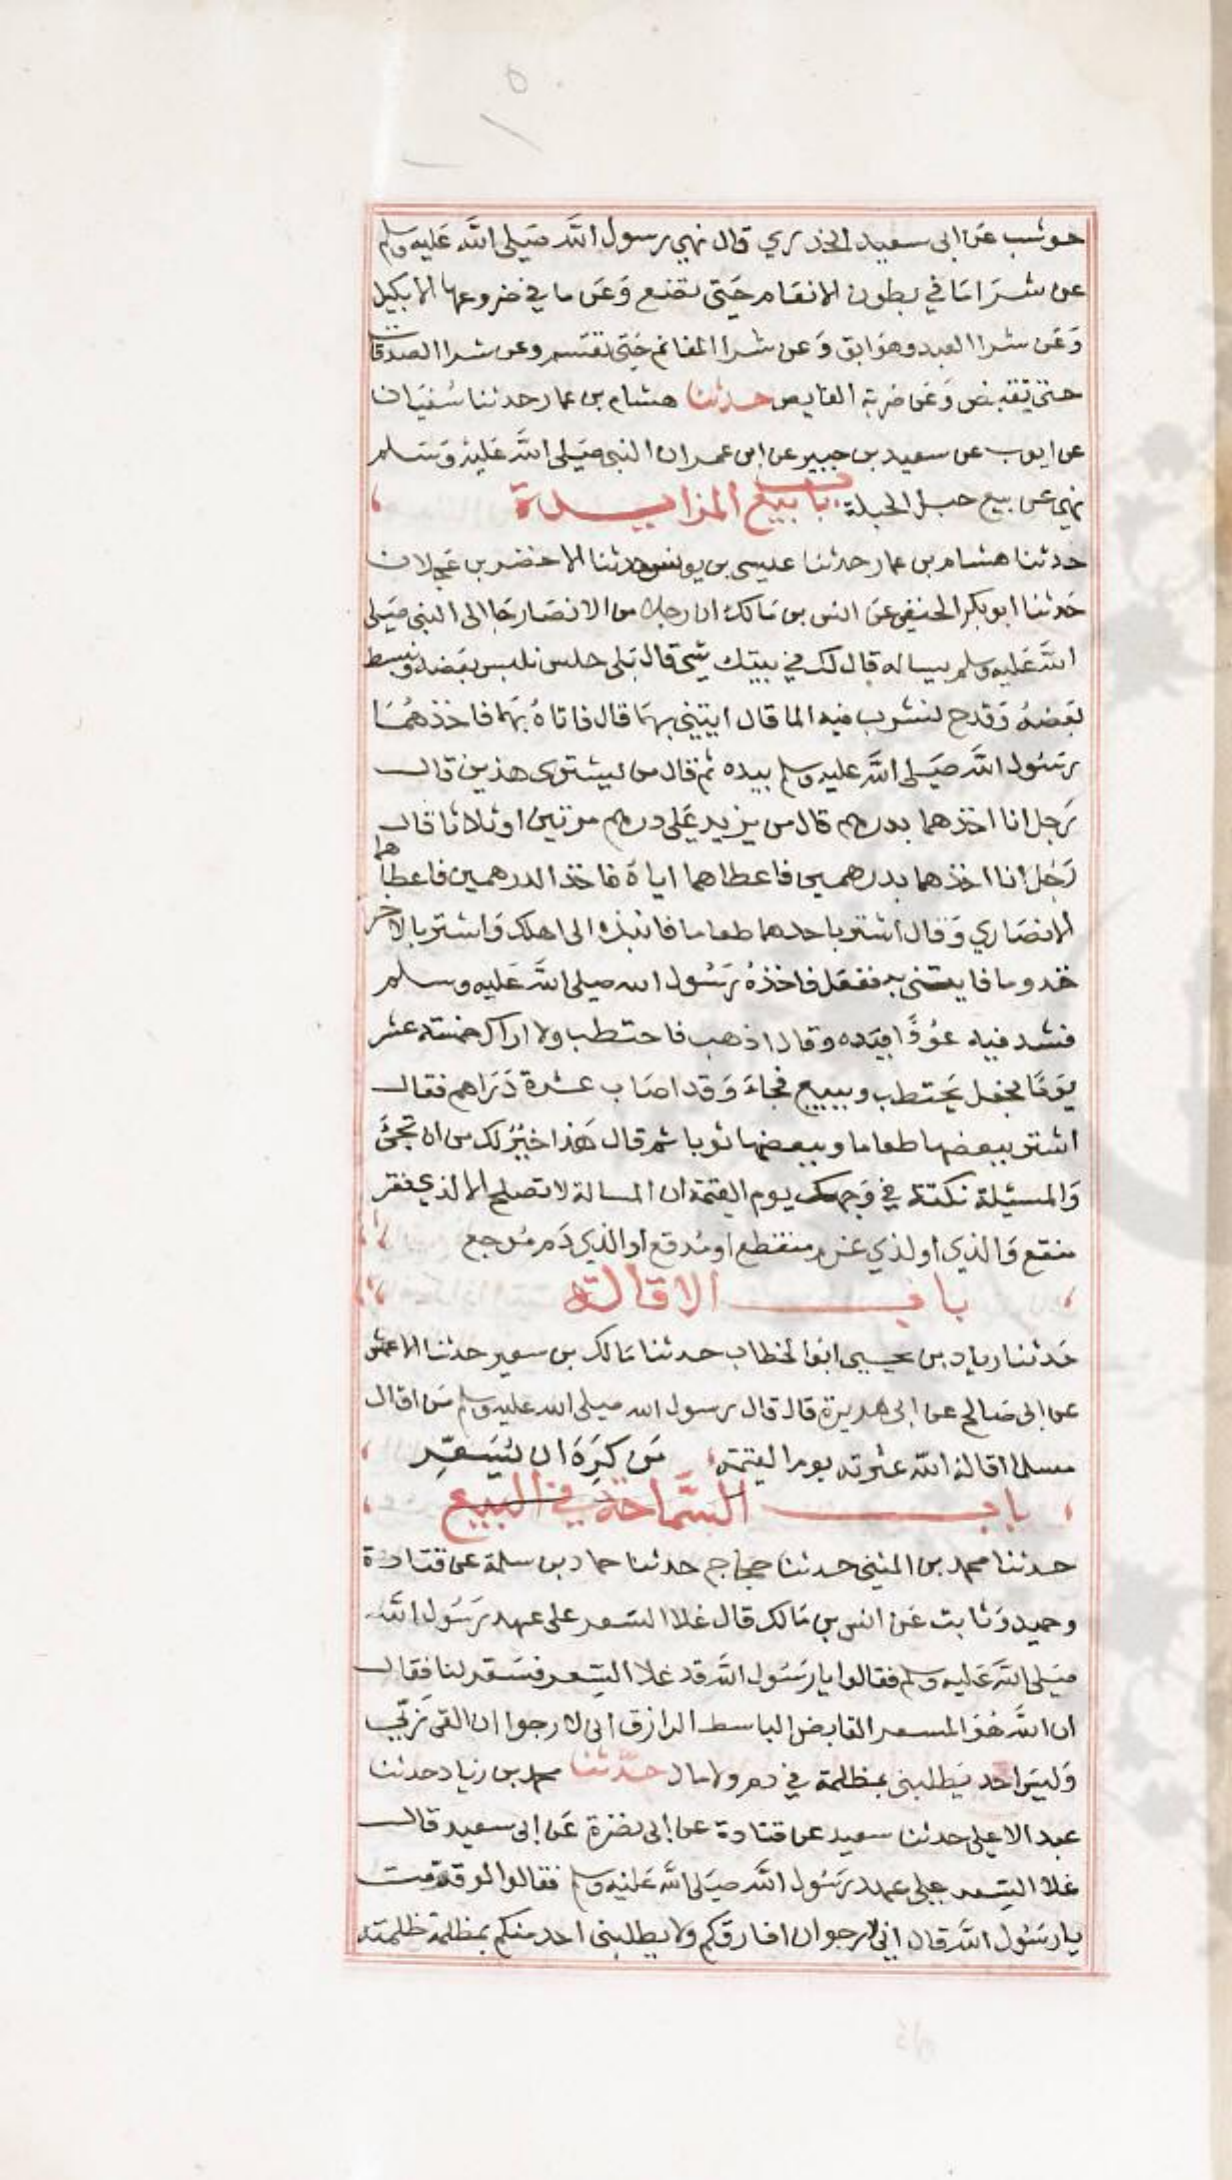 حوشب عن ابى سعيد الخدري قال نهي رسول الله صَلى الله عَليه وسلم
عن شرا مَا في بطون الانعَام حَتى تضع وَعَن ما في ضروعها الا بكيل
وَعَن شرا العبد وهوَ ابق وَعن شرا المغانم حَتى تقسَم وعن شرا الصدقات
حتى تقبض وَعَن ضربة الغايص حدثنا هشام بن عمار حدثنا سُفيَان
عن ايوب عن سعيد بن جبير عن ابن عمر ان النبي صَلى الله عَليه وَسَلم
نهي عن بيع حبل الحبلة باب بيع المزايدة
حَدثنا هشام بن عمار حدثنا عيسى بن يونس حدثنا الاخضر بن عَجلان
حَدثنا ابو بكر الحنفي عَن انس بن مَالك ان رجلا من الانصَار جَا الى النبي صَلى
الله عَليه وسلم يساله قال لك في بيتك شي قال بَلى حلس نلبس بعَضه ونبسط
بَعضهُ وَقدح نشرب فيه الما قال ايتيني بهمَا قال فاتاهُ بهمَا فاخذهُمَا
رسُول الله صَلى الله عليه وسلم بيده ثم قال من يشترى هذين قال
رَجل انا اخذهما بدرهم قال من يزيد عَلى درهم مرتين او ثلاثا قال
رَجل انا اخذهما بدرهمين فاعطاهما اياهُ فاخذ الدرهمين فاعطاهما
الانصَاري وَقال اشتر باحدهما طعاما فانبذه الى اهلك وَاشتر بالاخر
قدوما فايتنى به ففعَل فاخذهُ رسُول الله صلى الله عَليه وسلم
فشد فيه عوُدًا بيَده وقال اذهب فاحتطب ولا اراك خمسَة عشر
يَومًا فجعل يَحتطب ويبيع فجاءَ وَقد اصَاب عشرة دَرَاهم فقال
اشتر ببعضها طعاما وببعضها ثوبا ثم قال هَذا خيرُ لك من ان تجئ
وَالمسئيلة نكتة في وَجهك يوم القيمة ان المسالة لا تصلح الا لذي فقر
مدقع وَالذي او لذي غرم منقطع او مُدقع او الذي دَم مُوجع
باب الاقالة
حَدثنا زياد بن يحيى ابوُا لخطاب حدثنا مَالك بن سعير حدثنا الاعمش
عن ابى صَالح عن ابى هريرة قال قال رسول الله صلى الله عليه وسلم مَن اقال
مسلما اقاله الله عثرته يوم القيمة مَن كرِهَ ان يُسَعّر
باب السَّماحة في البيع
حدثنا محمد بن المثنى حدثنا حجاج حدثنا حماد بن سلمة عن قتادة
وحميد وَثابت عَن انس بن مَالك قال غلا السَعر على عهد رَسُول الله
صَلى الله عَليه وسلم فقالوا يا رَسُول الله قد غلا السِعر فسَعر لنا فقال
ان الله هُوَ المسعر القابض الباسط الرازق انى لارجوا ان القى رَبّي
وَليسَ احد يَطلبنى بمظلمة في دم ولا مال حَدّثنا محمد بن زياد حدثنا
عبد الاعلى حدثنا سعيد عن قتادة عن ابى نضرة عَن ابى سعيد قال
غلا السِعر على عهد رَسُول الله صَلى الله عَليه وسلم فقالوا لو قومت
يا رسُول الله قال اني لارجوا ان افارقكم ولا يطلبنى احد منكم بمظلمة ظلمته